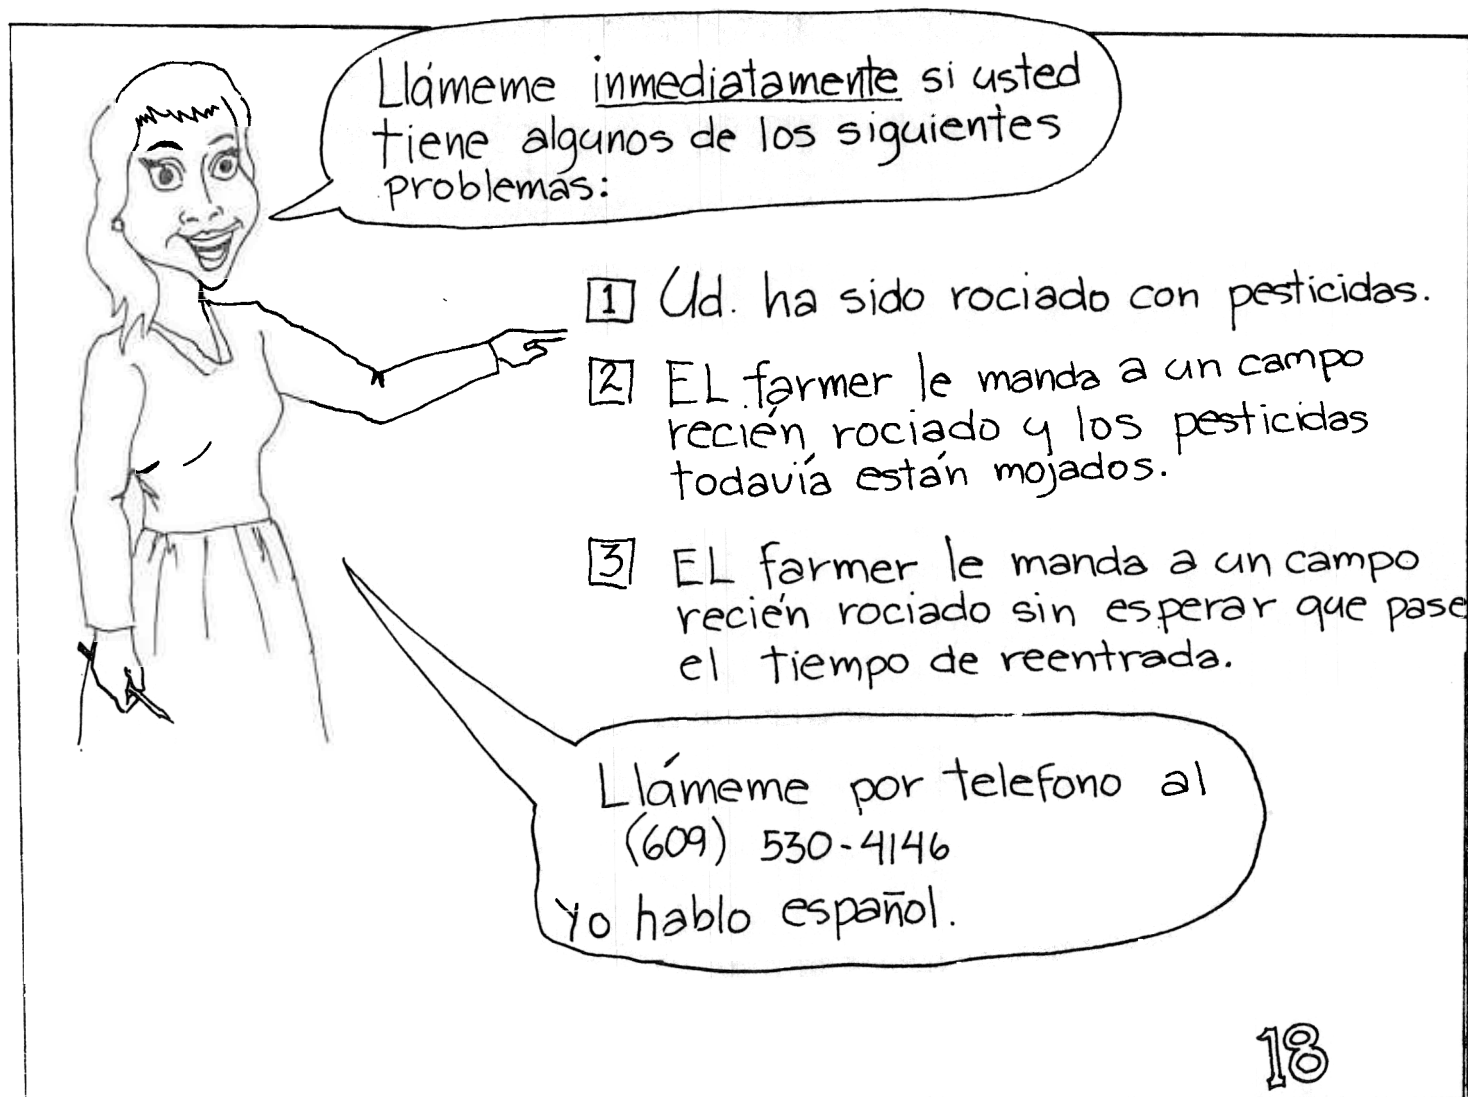 Llámeme inmediatamente si usted
tiene algunos de los siguientes
problemas:
1 Ud. ha sido rociado con pesticidas.
2 EL farmer le manda a un campo
recién rociado y los pesticidas
todavía están mojados.
3 EL farmer le manda a un campo
recién rociado sin esperar que pase
el tiempo de reentrada.
Llámeme por telefono al
(609) 530-4146
Yo hablo español.
18